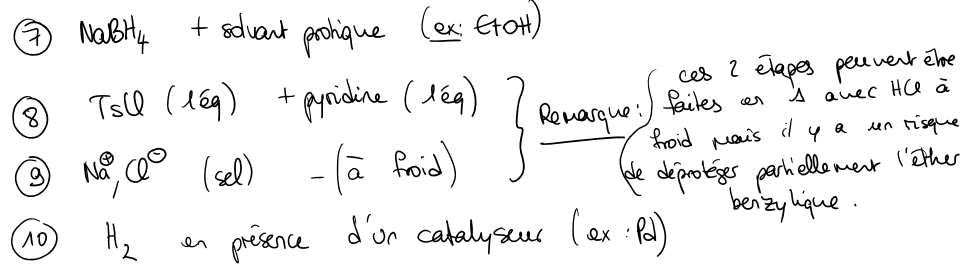 ⑦ NaBH₄ + solvant protique (ex: EtOH)
⑧ TsCl (1 éq) + pyridine (1 éq)
⑨ Na⊕, Cl⊖ (sel) - (à froid)
Remarque :
ces 2 étapes peuvent être
faites en 1 avec HCl à
froid mais il y a un risque
de déprotéger partiellement l'éther
benzylique.
⑩ H₂ en présence d'un catalyseur (ex : Pd)